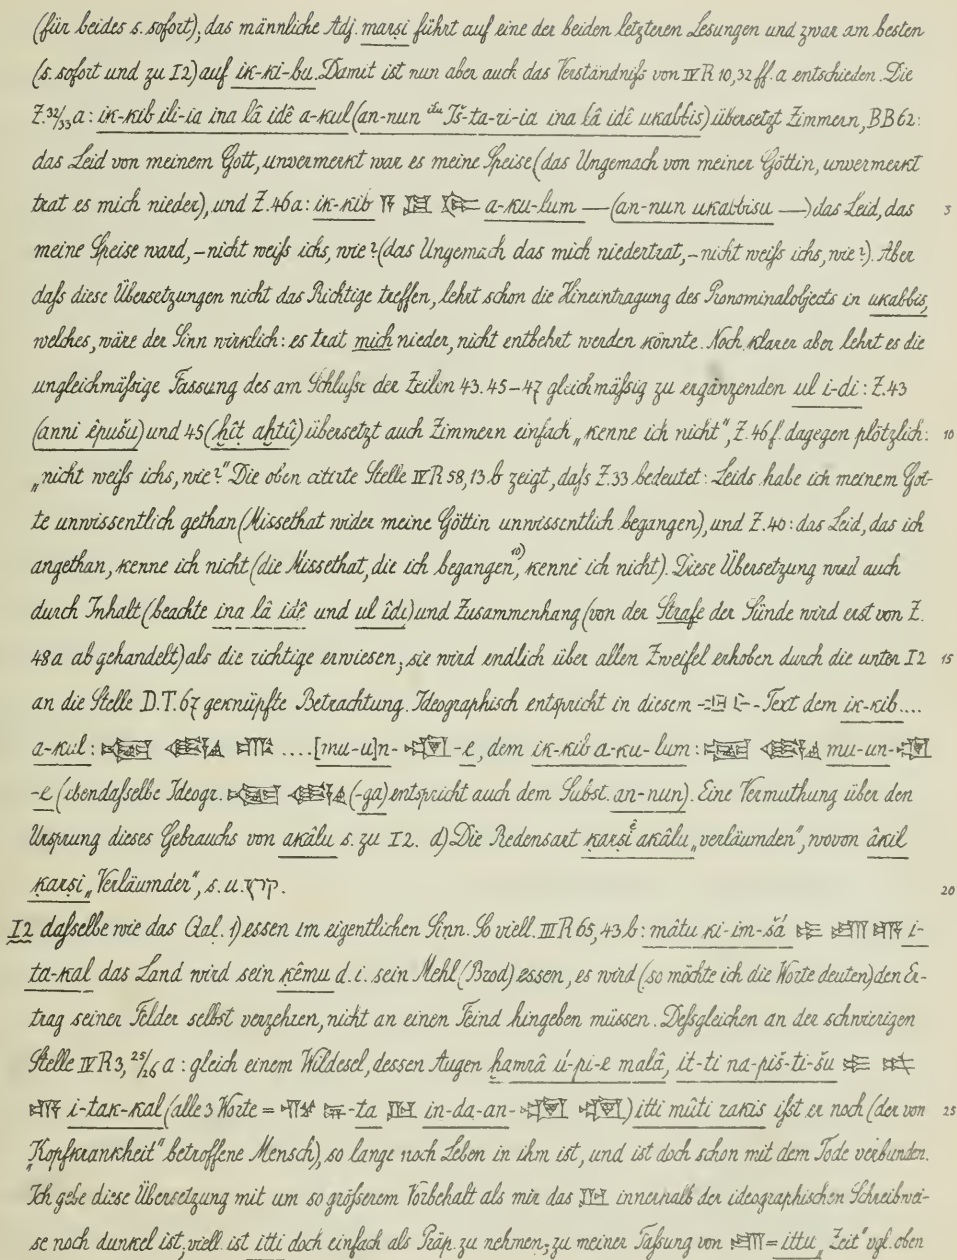 (für beides s. sofort); das männliche Adj. marṣi führt auf eine der beiden letzteren Lesungen und zwar am besten
(s. sofort und zu I2) auf ik-ki-bu. Damit ist nun aber auch das Verständnifs von IV R 10, 32 ff. a entschieden. Die
Z. 32/33 a: ik-kib ili-ia ina lâ idê a-kul (an-nun ilu Iš-ta-ri-ia ina lâ idî ukabbis) übersetzt Zimmern, BB 62:
das Leid von meinem Gott, unvermerkt war es meine Speise (das Ungemach von meiner Göttin, unvermerkt
trat es mich nieder), und Z. 46 a: ik-kib a-ku-lum — (an-nun ukabbisu —) das Leid, das 5
meine Speise ward, – nicht weifs ichs, wie? (das Ungemach das mich niedertrat, – nicht weifs ichs, wie?). Aber
dafs diese Übersetzungen nicht das Richtige treffen, lehrt schon die Hineintragung des Pronominalobjects in ukabbis,
welches, wäre der Sinn wirklich: es trat mich nieder, nicht entbehrt werden könnte. Noch klarer aber lehrt es die
ungleichmäfsige Fassung des am Schlufse der Zeilen 43. 45–47 gleichmäfsig zu ergänzenden ul i-di: Z. 43
(anni êpušu) und 45 (ḫîṭ aḫṭû) übersetzt auch Zimmern einfach „kenne ich nicht“, Z. 46 f. dagegen plötzlich: 10
„nicht weifs ichs, wie?“ Die oben citirte Stelle IV R 58, 13 b zeigt, dafs Z. 33 bedeutet: Leids habe ich meinem Got-
te unwissentlich gethan (Missethat wider meine Göttin unwissentlich begangen), und Z. 40: das Leid, das ich
angethan, kenne ich nicht (die Missethat, die ich begangen 10), kenne ich nicht). Diese Übersetzung wird auch
durch Inhalt (beachte ina lâ idê und ul îdi) und Zusammenhang (von der Strafe der Sünde wird erst von Z.
48 a ab gehandelt) als die richtige erwiesen; sie wird endlich über allen Zweifel erhoben durch die unter I2 15
an die Stelle D.T. 67 geknüpfte Betrachtung. Ideographisch entspricht in diesem -Text dem ik-kib....
a-kul: .... [mu-u]n- -e, dem ik-kib a-ku-lum: mu-un-
-e (ebendafselbe Ideogr. (-ga) entspricht auch dem Subst. an-nun). Eine Vermuthung über den
Ursprung dieses Gebrauchs von akâlu s. zu I2. d) Die Redensart ḳarṣi akâlu „verläumden“, wovon âkil
ḳarṣi „Verläumder“, s. u. קרץ. 20
I2 dafselbe wie das Qal. 1) essen im eigentlichen Sinn. So viell. III R 65, 43 b: mâtu ki-im-šá i-
ta-kal das Land wird sein ḳêmu d. i. sein Mehl (Brod) essen, es wird (so möchte ich die Worte deuten) den Er-
trag seiner Felder selbst verzehren, nicht an einen Feind hingeben müssen. Defsgleichen an der schwierigen
Stelle IV R 3, 25/26 a: gleich einem Wildesel, dessen Augen ḫamrâ ú-pi-e malâ, it-ti na-piš-ti-šu
i-tak-kal (alle 3 Worte = -ta in-da-an- ) itti mûti rakis ifst er noch (der von 25
„Kopfkrankheit“ betroffene Mensch), so lange noch Leben in ihm ist, und ist doch schon mit dem Tode verbunden.
Ich gebe diese Übersetzung mit um so gröfserem Vorbehalt als mir das innerhalb der ideographischen Schreibwei-
se noch dunkel ist; viell. ist itti doch einfach als Präp. zu nehmen; zu meiner Fafsung von = ittu „Zeit“ vgl. oben